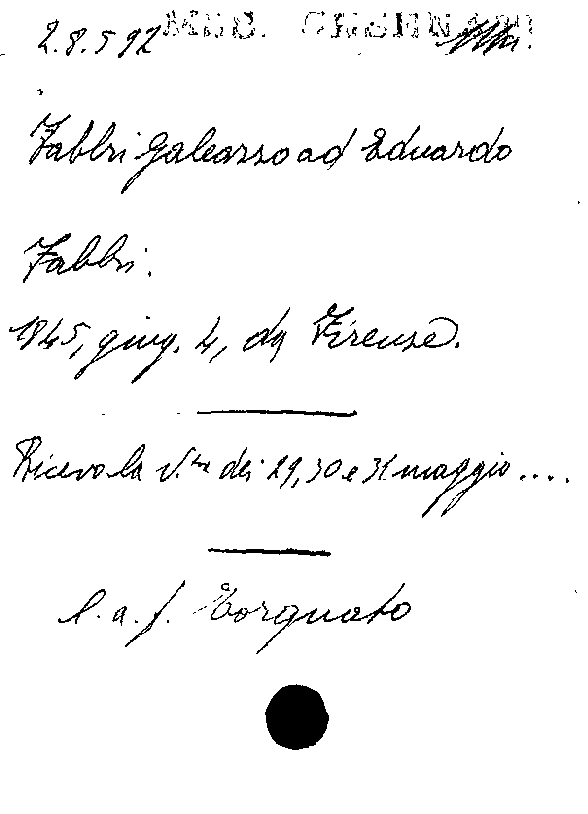 2.8.592 MSS.
Fabbri Galeazzo ad Eduardo
Fabbri.
1845, giug. 4, da Firenze.
Ricevo la V.tra dei 29, 30 e 31 maggio ....
l. a. f. Torquato